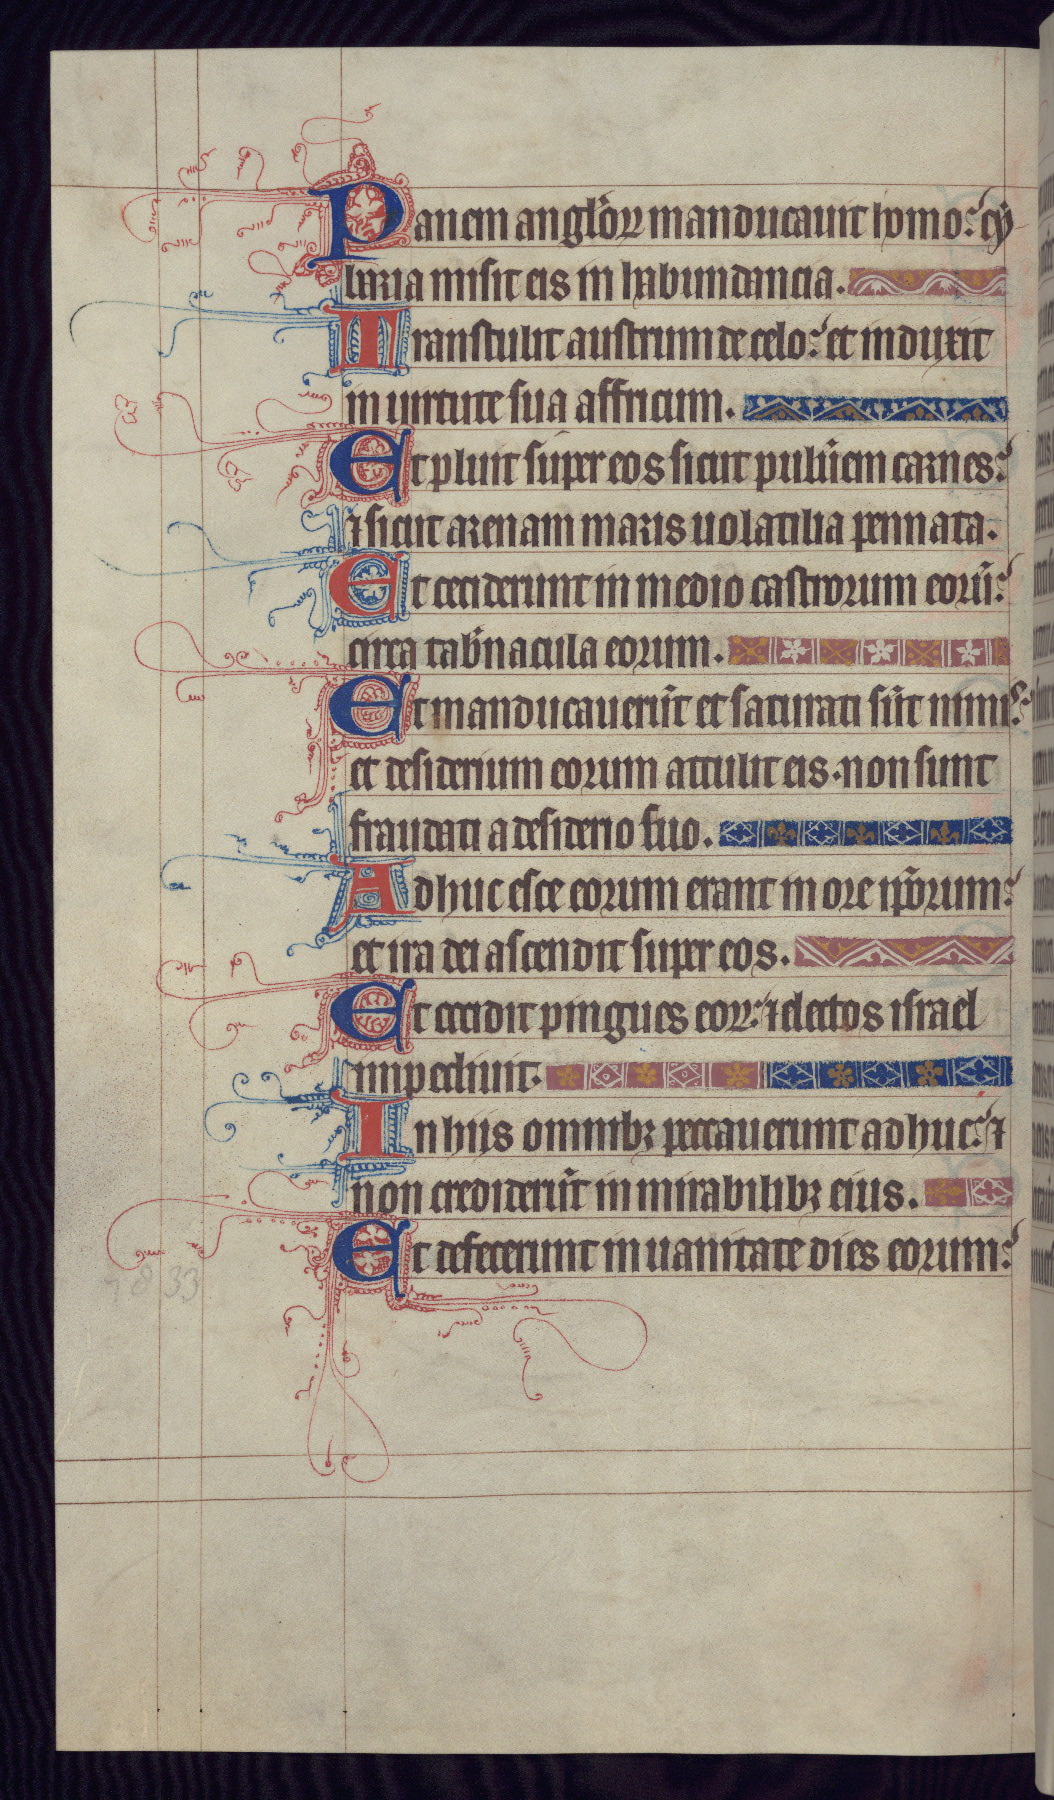 Panem angl'oꝝ manducauit homo: cy
baria misit eis in habundancia.
Transtulit austrum de celo: et induxit
in uirtute sua affricum.
Et pluit super eos sicut puluͥem carnes:
⁊ sicut arenam maris uolatilia pennata.
Et ceciderunt in medio castrorum eorū:
circa tab'nacula eorum.
Et manducauerūt et saturati sūt nimis:
et desiderium eorum attulit eis. non sunt
fraudati a desiderio suo.
Adhuc esce eorum erant in ore ip̄orum:
et ira dei ascendit super eos.
Et occidit pingues eoꝝ: ⁊ electos israel
impediuit.
In hiis omnibꝫ peccauerunt adhuc: ⁊
non crediderūt in mirabilibꝫ eius.
Et defecerunt in uanitate dies eorum: